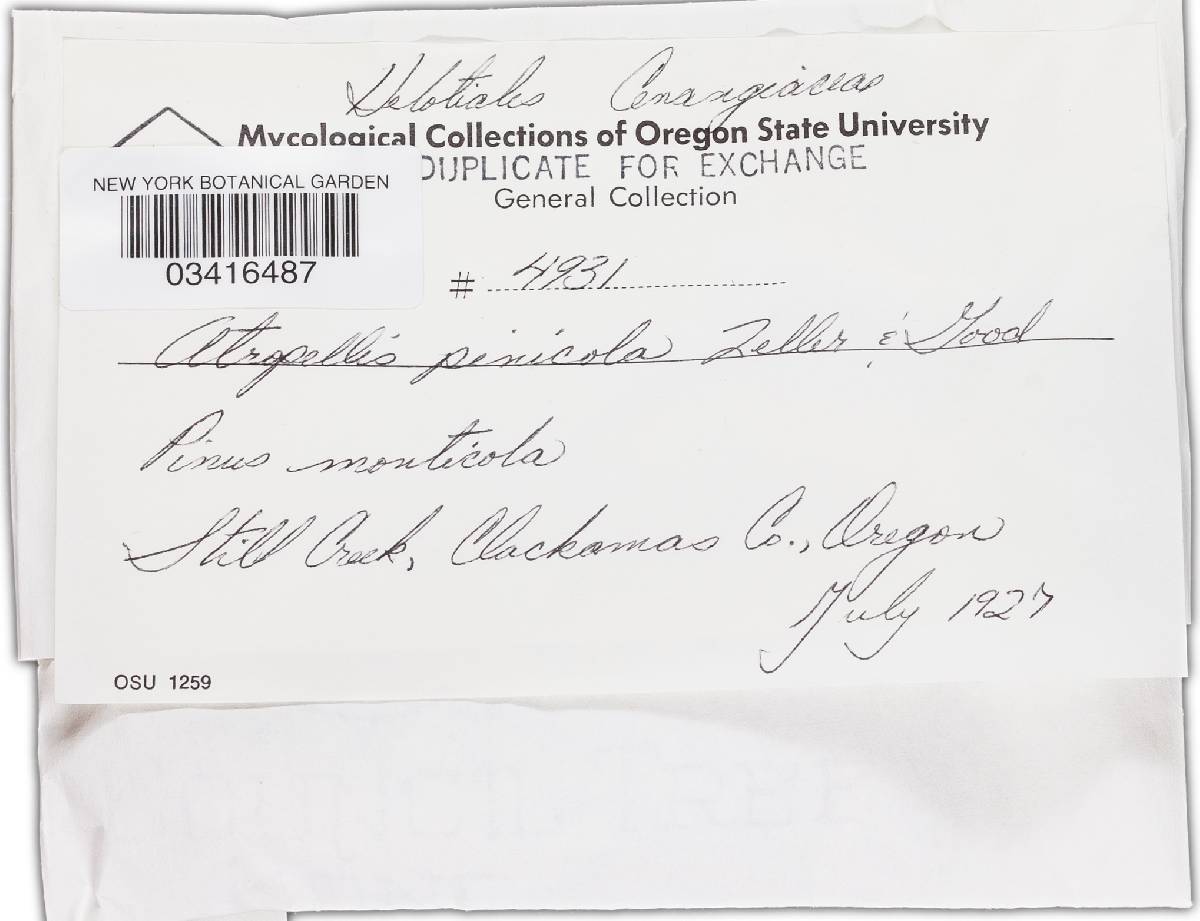 Helotiales Cenangiaceae
Mycological Collections of Oregon State University
DUPLICATE FOR EXCHANGE
General Collection
NEW YORK BOTANICAL GARDEN
03416487
# 4931
Atropellis pinicola Zeller & Good
Pinus monticola
Still Creek, Clackamas Co., Oregon
July 1927
OSU 1259